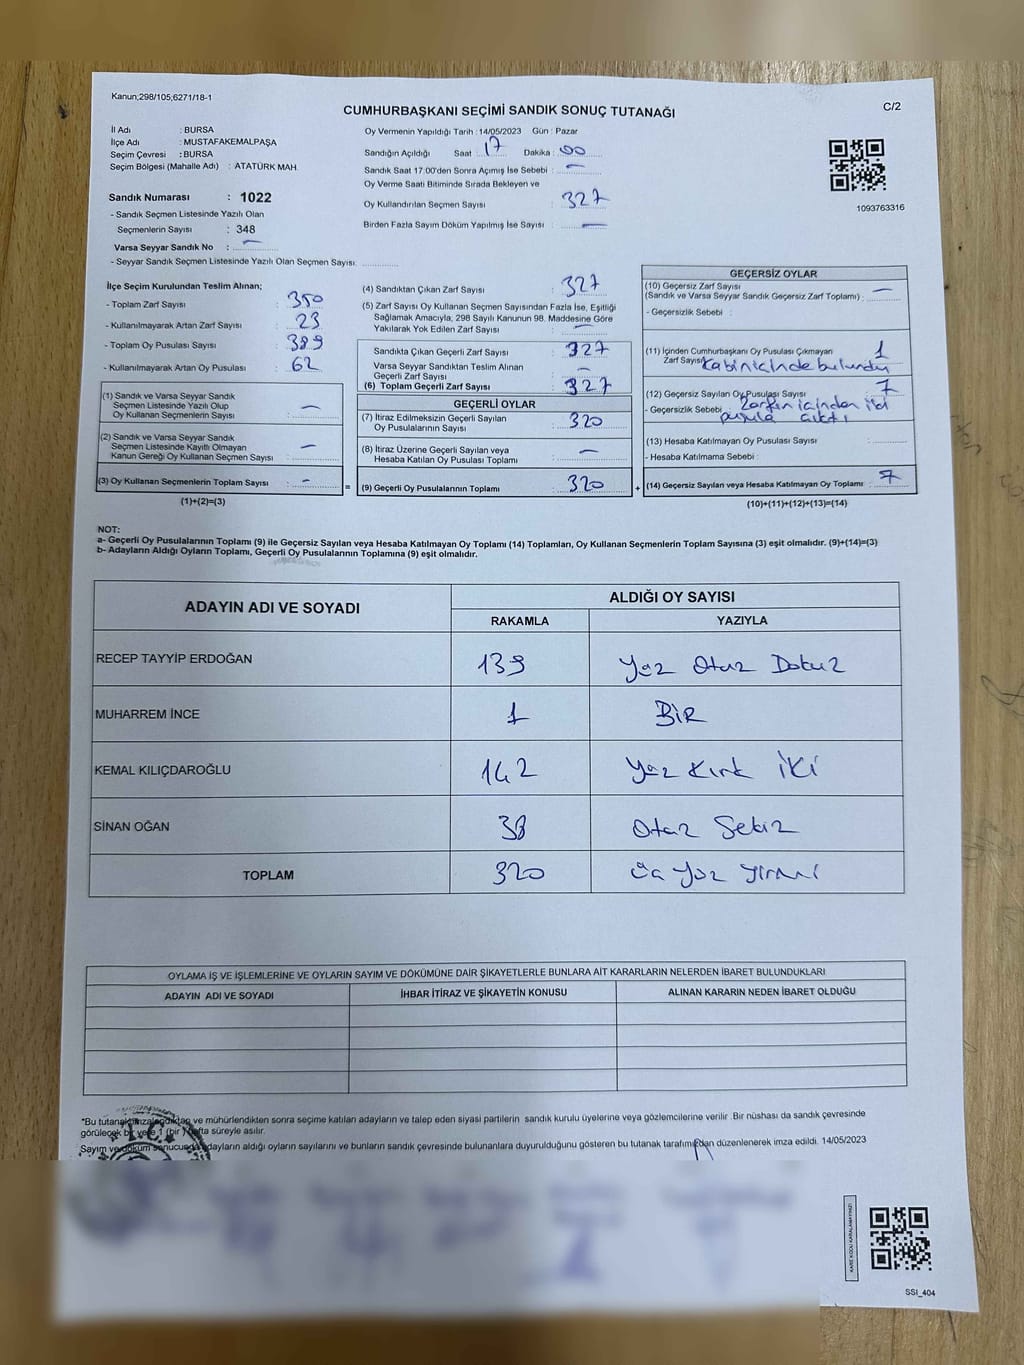 Kanun;298/105;6271/18-1
CUMHURBAŞKANI SEÇİMİ SANDIK SONUÇ TUTANAĞI
C/2
İl Adı : BURSA
İlçe Adı : MUSTAFAKEMALPAŞA
Seçim Çevresi : BURSA
Seçim Bölgesi (Mahalle Adı) : ATATÜRK MAH.
Sandık Numarası : 1022
- Sandık Seçmen Listesinde Yazılı Olan
Seçmenlerin Sayısı : 348
Varsa Seyyar Sandık No : —
- Seyyar Sandık Seçmen Listesinde Yazılı Olan Seçmen Sayısı:
Oy Vermenin Yapıldığı Tarih : 14/05/2023 Gün : Pazar
Sandığın Açıldığı Saat : 17 Dakika : 00
Sandık Saat 17.00'den Sonra Açımış İse Sebebi : —
Oy Verme Saati Bitiminde Sırada Bekleyen ve
Oy Kullandırılan Seçmen Sayısı : 327
Birden Fazla Sayım Döküm Yapılmış İse Sayısı : —
1093763316
İlçe Seçim Kurulundan Teslim Alınan;
- Toplam Zarf Sayısı : 350
- Kullanılmayarak Artan Zarf Sayısı : 23
- Toplam Oy Pusulası Sayısı : 389
- Kullanılmayarak Artan Oy Pusulası : 62
(1) Sandık ve Varsa Seyyar Sandık
Seçmen Listesinde Yazılı Olup
Oy Kullanan Seçmenlerin Sayısı : —
(2) Sandık ve Varsa Seyyar Sandık
Seçmen Listesinde Kayıtlı Olmayan
Kanun Gereği Oy Kullanan Seçmen Sayısı : —
(3) Oy Kullanan Seçmenlerin Toplam Sayısı : —
(1)+(2)=(3)
(4) Sandıktan Çıkan Zarf Sayısı : 327
(5) Zarf Sayısı Oy Kullanan Seçmen Sayısından Fazla İse, Eşitliği
Sağlamak Amacıyla, 298 Sayılı Kanunun 98. Maddesine Göre
Yakılarak Yok Edilen Zarf Sayısı : —
Sandıkta Çıkan Geçerli Zarf Sayısı : 327
Varsa Seyyar Sandıktan Teslim Alınan
Geçerli Zarf Sayısı : —
(6) Toplam Geçerli Zarf Sayısı : 327
GEÇERLİ OYLAR
(7) İtiraz Edilmeksizin Geçerli Sayılan
Oy Pusulalarının Sayısı : 320
(8) İtiraz Üzerine Geçerli Sayılan veya
Hesaba Katılan Oy Pusulası Toplamı : —
= (9) Geçerli Oy Pusulalarının Toplamı : 320 +
GEÇERSİZ OYLAR
(10) Geçersiz Zarf Sayısı
(Sandık ve Varsa Seyyar Sandık Geçersiz Zarf Toplamı) : —
- Geçersizlik Sebebi :
(11) İçinden Cumhurbaşkanı Oy Pusulası Çıkmayan 1
Zarf Sayısı kabin içinde bulundu
(12) Geçersiz Sayılan Oy Pusulası Sayısı : 7
- Geçersizlik Sebebi : Zarfın içinden iki
pusula çıktı
(13) Hesaba Katılmayan Oy Pusulası Sayısı :
- Hesaba Katılmama Sebebi :
(14) Geçersiz Sayılan veya Hesaba Katılmayan Oy Toplamı : 7
(10)+(11)+(12)+(13)=(14)
NOT:
a- Geçerli Oy Pusulalarının Toplamı (9) ile Geçersiz Sayılan veya Hesaba Katılmayan Oy Toplamı (14) Toplamları, Oy Kullanan Seçmenlerin Toplam Sayısına (3) eşit olmalıdır. (9)+(14)=(3)
b- Adayların Aldığı Oyların Toplamı, Geçerli Oy Pusulalarının Toplamına (9) eşit olmalıdır.
ADAYIN ADI VE SOYADI
ALDIĞI OY SAYISI
RAKAMLA YAZIYLA
RECEP TAYYİP ERDOĞAN 139 Yüz Otuz Dokuz
MUHARREM İNCE 1 BİR
KEMAL KILIÇDAROĞLU 142 Yüz Kırk İKİ
SİNAN OĞAN 38 Otuz Sekiz
TOPLAM 320 Üç Yüz Yirmi
OYLAMA İŞ VE İŞLEMLERİNE VE OYLARIN SAYIM VE DÖKÜMÜNE DAİR ŞİKAYETLERLE BUNLARA AİT KARARLARIN NELERDEN İBARET BULUNDUKLARI
ADAYIN ADI VE SOYADI İHBAR İTİRAZ VE ŞİKAYETİN KONUSU ALINAN KARARIN NEDEN İBARET OLDUĞU
*Bu tutanak imzalandıktan ve mühürlendikten sonra seçime katılan adayların ve talep eden siyasi partilerin sandık kurulu üyelerine veya gözlemcilerine verilir. Bir nüshası da sandık çevresinde
görülecek bir yere 1 (bir) hafta süreyle asılır.
Sayım ve döküm sonucunda adayların aldığı oyların sayılarını ve bunların sandık çevresinde bulunanlara duyurulduğunu gösteren bu tutanak tarafımızdan düzenlenerek imza edildi. 14/05/2023
T.C.
KARE KODU KARALAMAYINIZ!
SSI_404